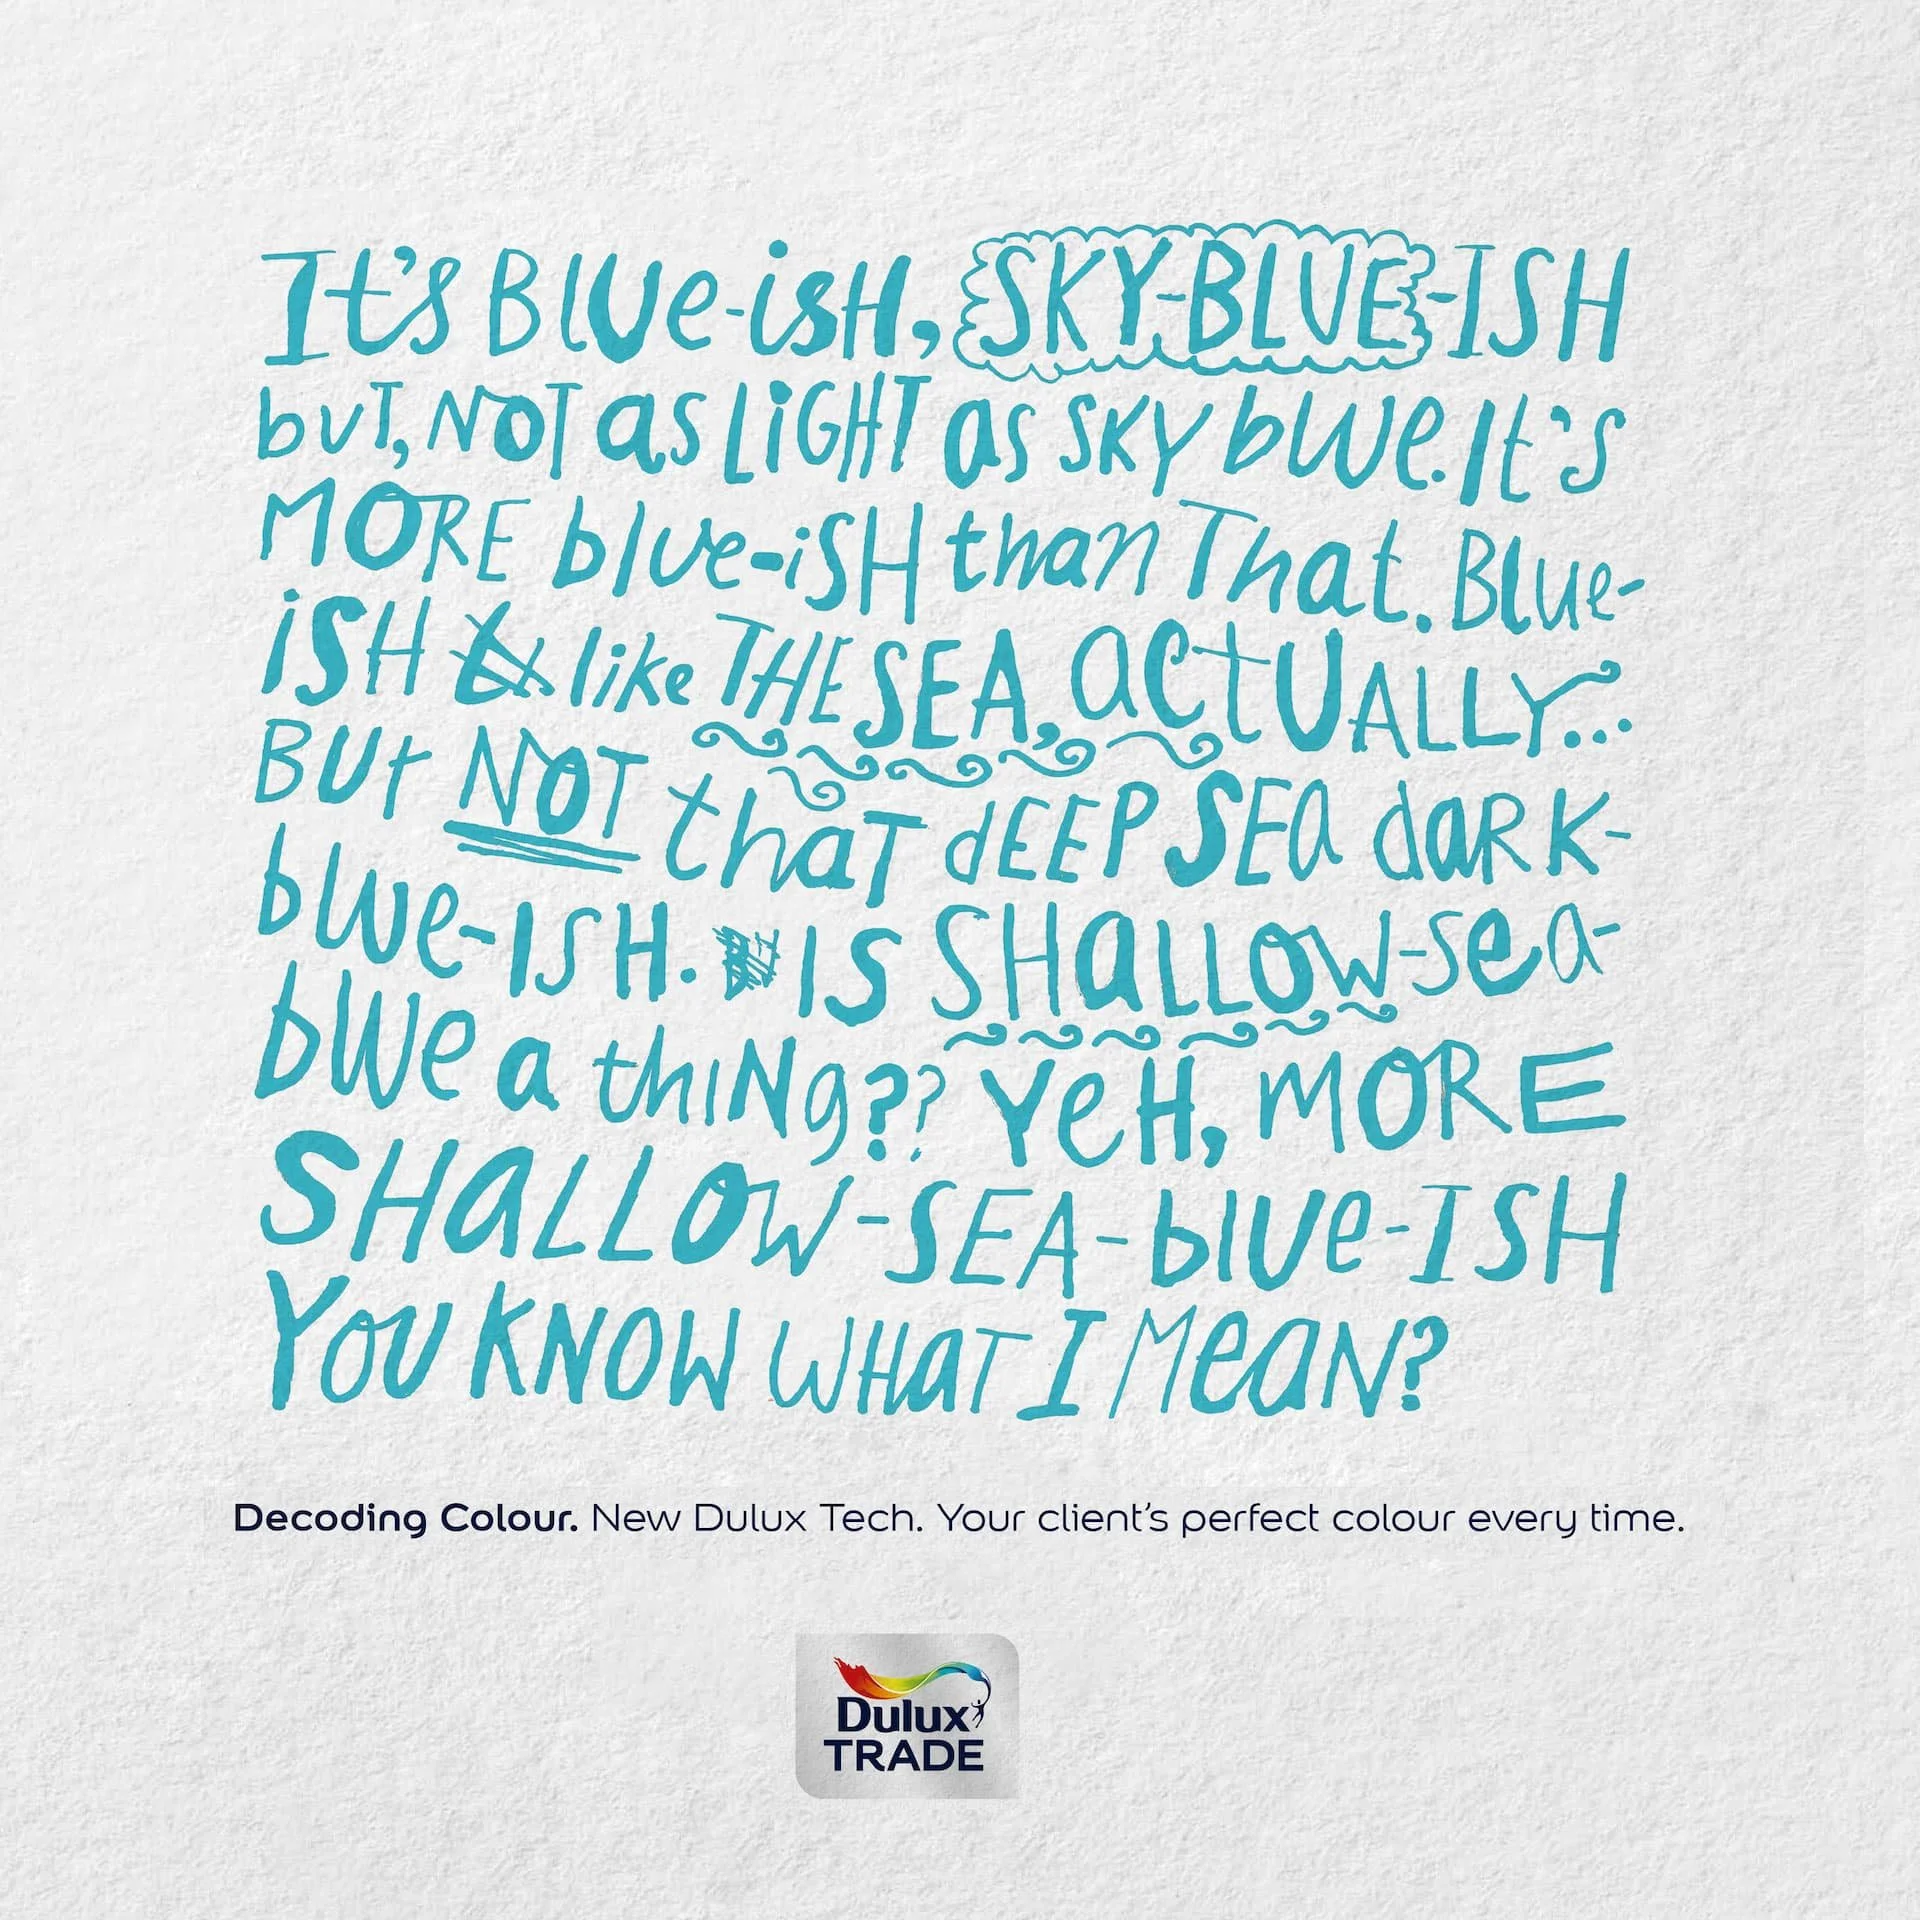 It's Blue-ish, SKY-BLUE-ISH
but, NOT as LiGHT as SKY blue. It's
MORE blue-iSH than That. Blue-
iSH like THE SEA, actUALLY...
BUt NOT thaT dEEP SEa daRK-
blue-ISH. IS SHaLLOW-sea-
blue a thiNg?? YeH, MORE
SHaLLOW-SEA-blue-ISH
YOU KNOW WHaT I MeaN?
Decoding Colour. New Dulux Tech. Your client's perfect colour every time.
Dulux
TRADE